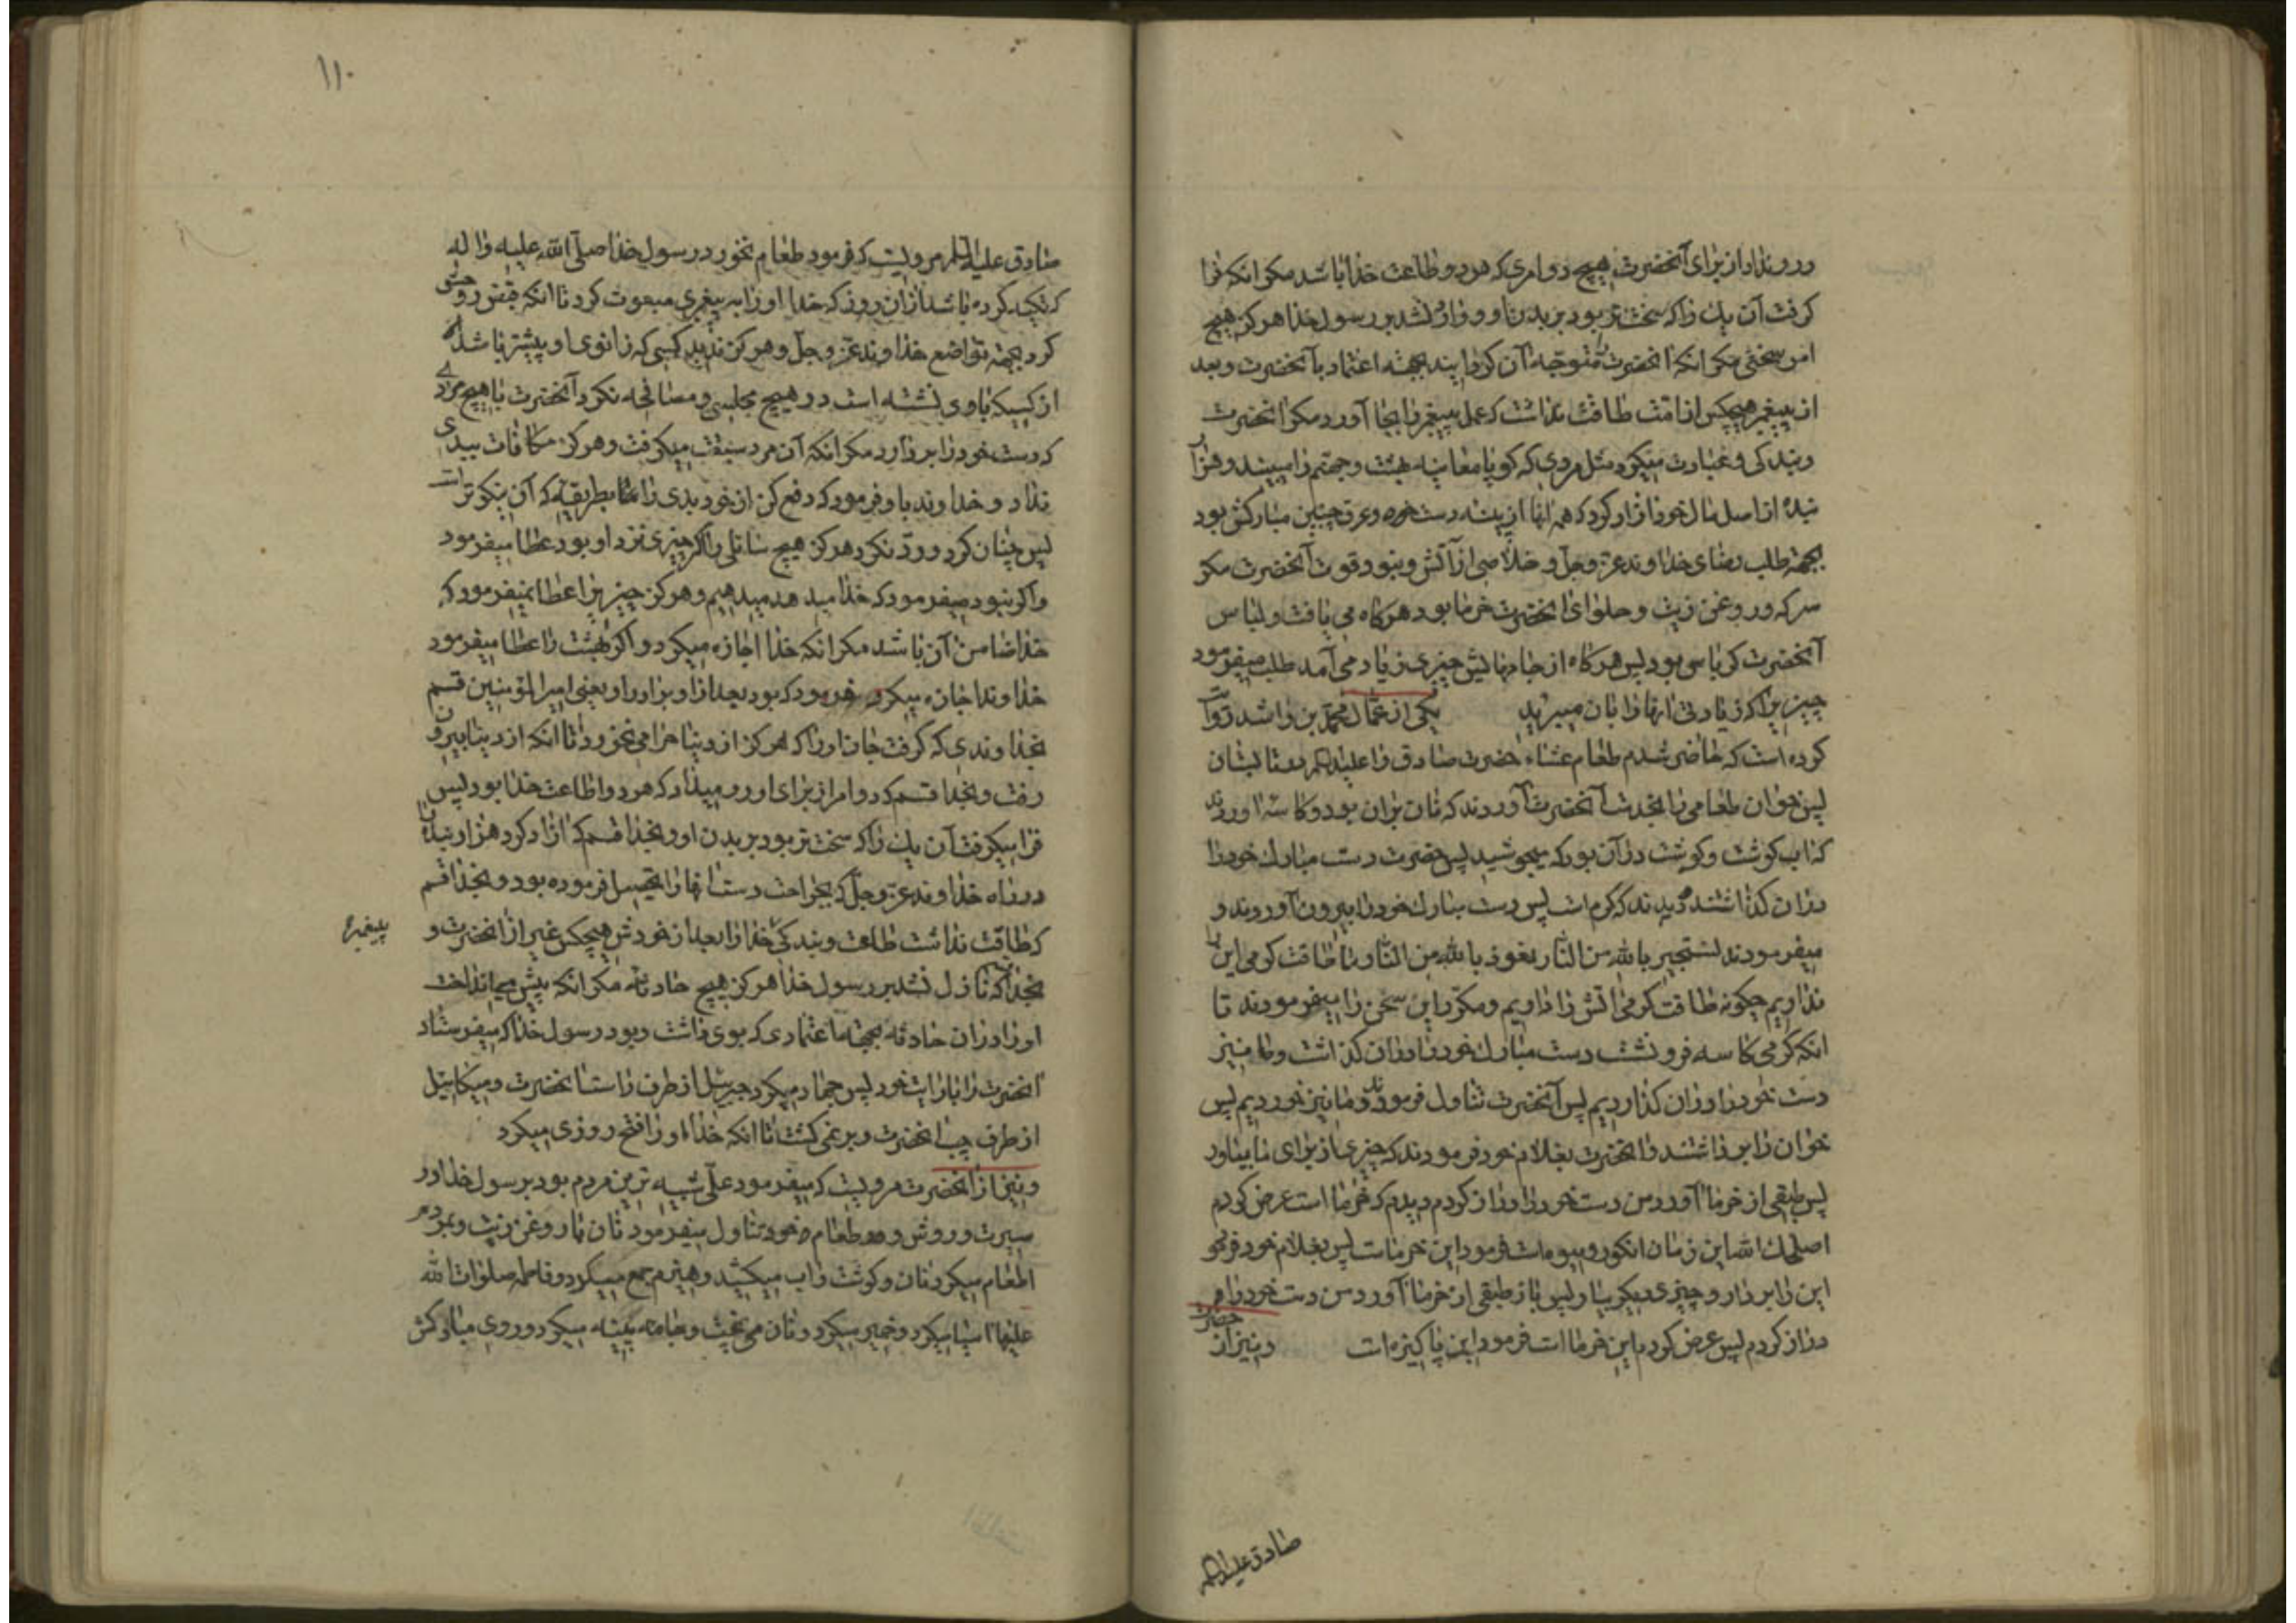 ورو نداد از برای آنحضرت هیچ دو امری که هر دو طاعت خدا باشد مکر انکه فرا
کرفت آن یک را که سخت‌تر بود بر بدن او و وارد نشد بر رسول خدا هرکز هیچ
امر سختی مکر انکه انحضرت را متوجه آن کردانیدند بجهته اعتماد بآنحضرت و بعد
از پیغمبر هیچکس از امت طاقت نداشت که عمل پیغمبر را بجا آورد مکر انحضرت
و بندکی و عبادت میکرد مثل مردی که کویا معاینه بهشت و جهنم را میبیند و هزار
بنده از اصل مال خود ازاد کرد که همه انها از پینه دست خود و عرق جبین مبارکش بود
بجهته طلب رضای خداوند عز و جل و خلاصی از آتش و نبود قوت آنحضرت مکر
سرکه و روغن زیت و حلوای انحضرت خرما بود هرکاه می یافت و لباس
آنحضرت کرباس بود پس هرکاه از جامهایش چیزی زیاد می آمد طلب میفرمود
چیزیرا که زیادتی انها را بان میبرید یکی از عمال محمد بن راشد روایت
کرده است که حاضر شدم طعام عشاء حضرت صادق را علیه السلم در تابستان
پس خوان طعامی را بخدمت آنحضرت آوردند که نان بران بود و کاسه اوردند
که اب کوشت و کوشت در آن بود که میجوشید پس حضرت دست مبارک خود را
دران کذاشتند دیدند که کرم است پس دست مبارک خود را بیرون آوردند و
میفرمودند نستجیر بالله من النار نعوذ بالله من النار ما طاقت کرمی این را
نداریم چکونه طاقت کرمی اتش را داریم و مکرر این سخن را میفرمودند تا
انکه کرمی کاسه فرو نشست دست مبارک خود را دران کذاشت و ما نیز
دست خود را دران کذاردیم پس آنحضرت تناول فرمودند و ما نیز خوردیم پس
خوان را برداشتند و انحضرت بغلام خود فرمودند که چیزی از برای ما بیاور
پس طبقی از خرما آورد من دست خود را دراز کردم دیدم که خرما است عرض کردم
اصلحک الله این زمان انکور و میوه است فرمود این خرماست پس بغلام خود فرمود
این را بردار و چیزی دیکر بیاور پس باز طبقی از خرما آورد من دست خود را هم
دراز کردم پس عرض کردم این خرما است فرمود این پاکیزه است و نیز از حضرت
صادق علیه السلم
۱۱۰
صادق علیه السلم مرویست که فرمود طعام نخورد رسول خدا صلی الله علیه و اله
که تکیه کرده باشد از ان روز که خدا او را به پیغمبری مبعوث کرد تا انکه قبض روحش
کرد بجهته تواضع خداوند عز و جل و هرکز ندید کسی که زانوی او پیشتر باشد
از کسیکه با وی نشسته است در هیچ مجلسی و مصافحه نکرد آنحضرت با هیچ مردی
که دست خود را بردارد مکر انکه آن مرد سبقت میکرفت و هرکز مکافات بیدی
نداد و خداوند باو فرمود که دفع کن از خود بدی را بطریقه که آن نیکوتر است
پس چنان کرد و رد نکرد هرکز هیچ سائلی را اکر چیزی نزد او بود عطا میفرمود
و اکر نبود میفرمود که خدا میدهد میدهیم و هرکز چیزیرا عطا نمیفرمود که
خدا ضامن آن باشد مکر انکه خدا اجازه میکرد و اکر بهشت را عطا میفرمود
خداوند اجازه میکرد فرمود که بود بعد از او برادر او یعنی امیرالمؤمنین قسم
بخداوندی که کرفت جان او را که هرکز از دنیا حرامی نخورد تا انکه از دنیا بیرون
رفت و بخدا قسم که دو امر از برای او رو میداد که هر دو اطاعت خدا بود پس
فرا میکرفت آن یک را که سخت‌تر بود بر بدن او و بخدا قسم که ازاد کرد هزار بنده را
در راه خداوند عز و جل که بجراحت دست انها را تحصیل فرموده بود و بخدا قسم
که طاقت نداشت طاعت و بندکی خدا را بعد از خودش هیچکس غیر از انحضرت و
پیغمبر
بخدا قسم که نازل نشد بر رسول خدا هرکز هیچ حادثه مکر انکه پیش میانداخت
او را دران حادثه بجهته اعتمادی که بوی داشت و بود رسول خدا که میفرستاد
انحضرت را با رایت خود پس جهاد میکرد جبرئیل از طرف راست انحضرت و میکائیل
از طرف چپ انحضرت و بر نمی کشت تا انکه خدا او را فتح روزی میکرد
و نیز از انحضرت مرویست که میفرمود علی شبیه ترین مردم بود برسول خدا در
سیرت و روش و طعام خود تناول میفرمود نان با روغن زیت و بمردم
اطعام میکرد نان و کوشت و اب میکشید و هیزم جمع میکرد و فاطمه صلوات الله
علیها اسیا میکرد و خمیر میکرد و نان می پخت و جامه پینه میکرد و روی مبارکش